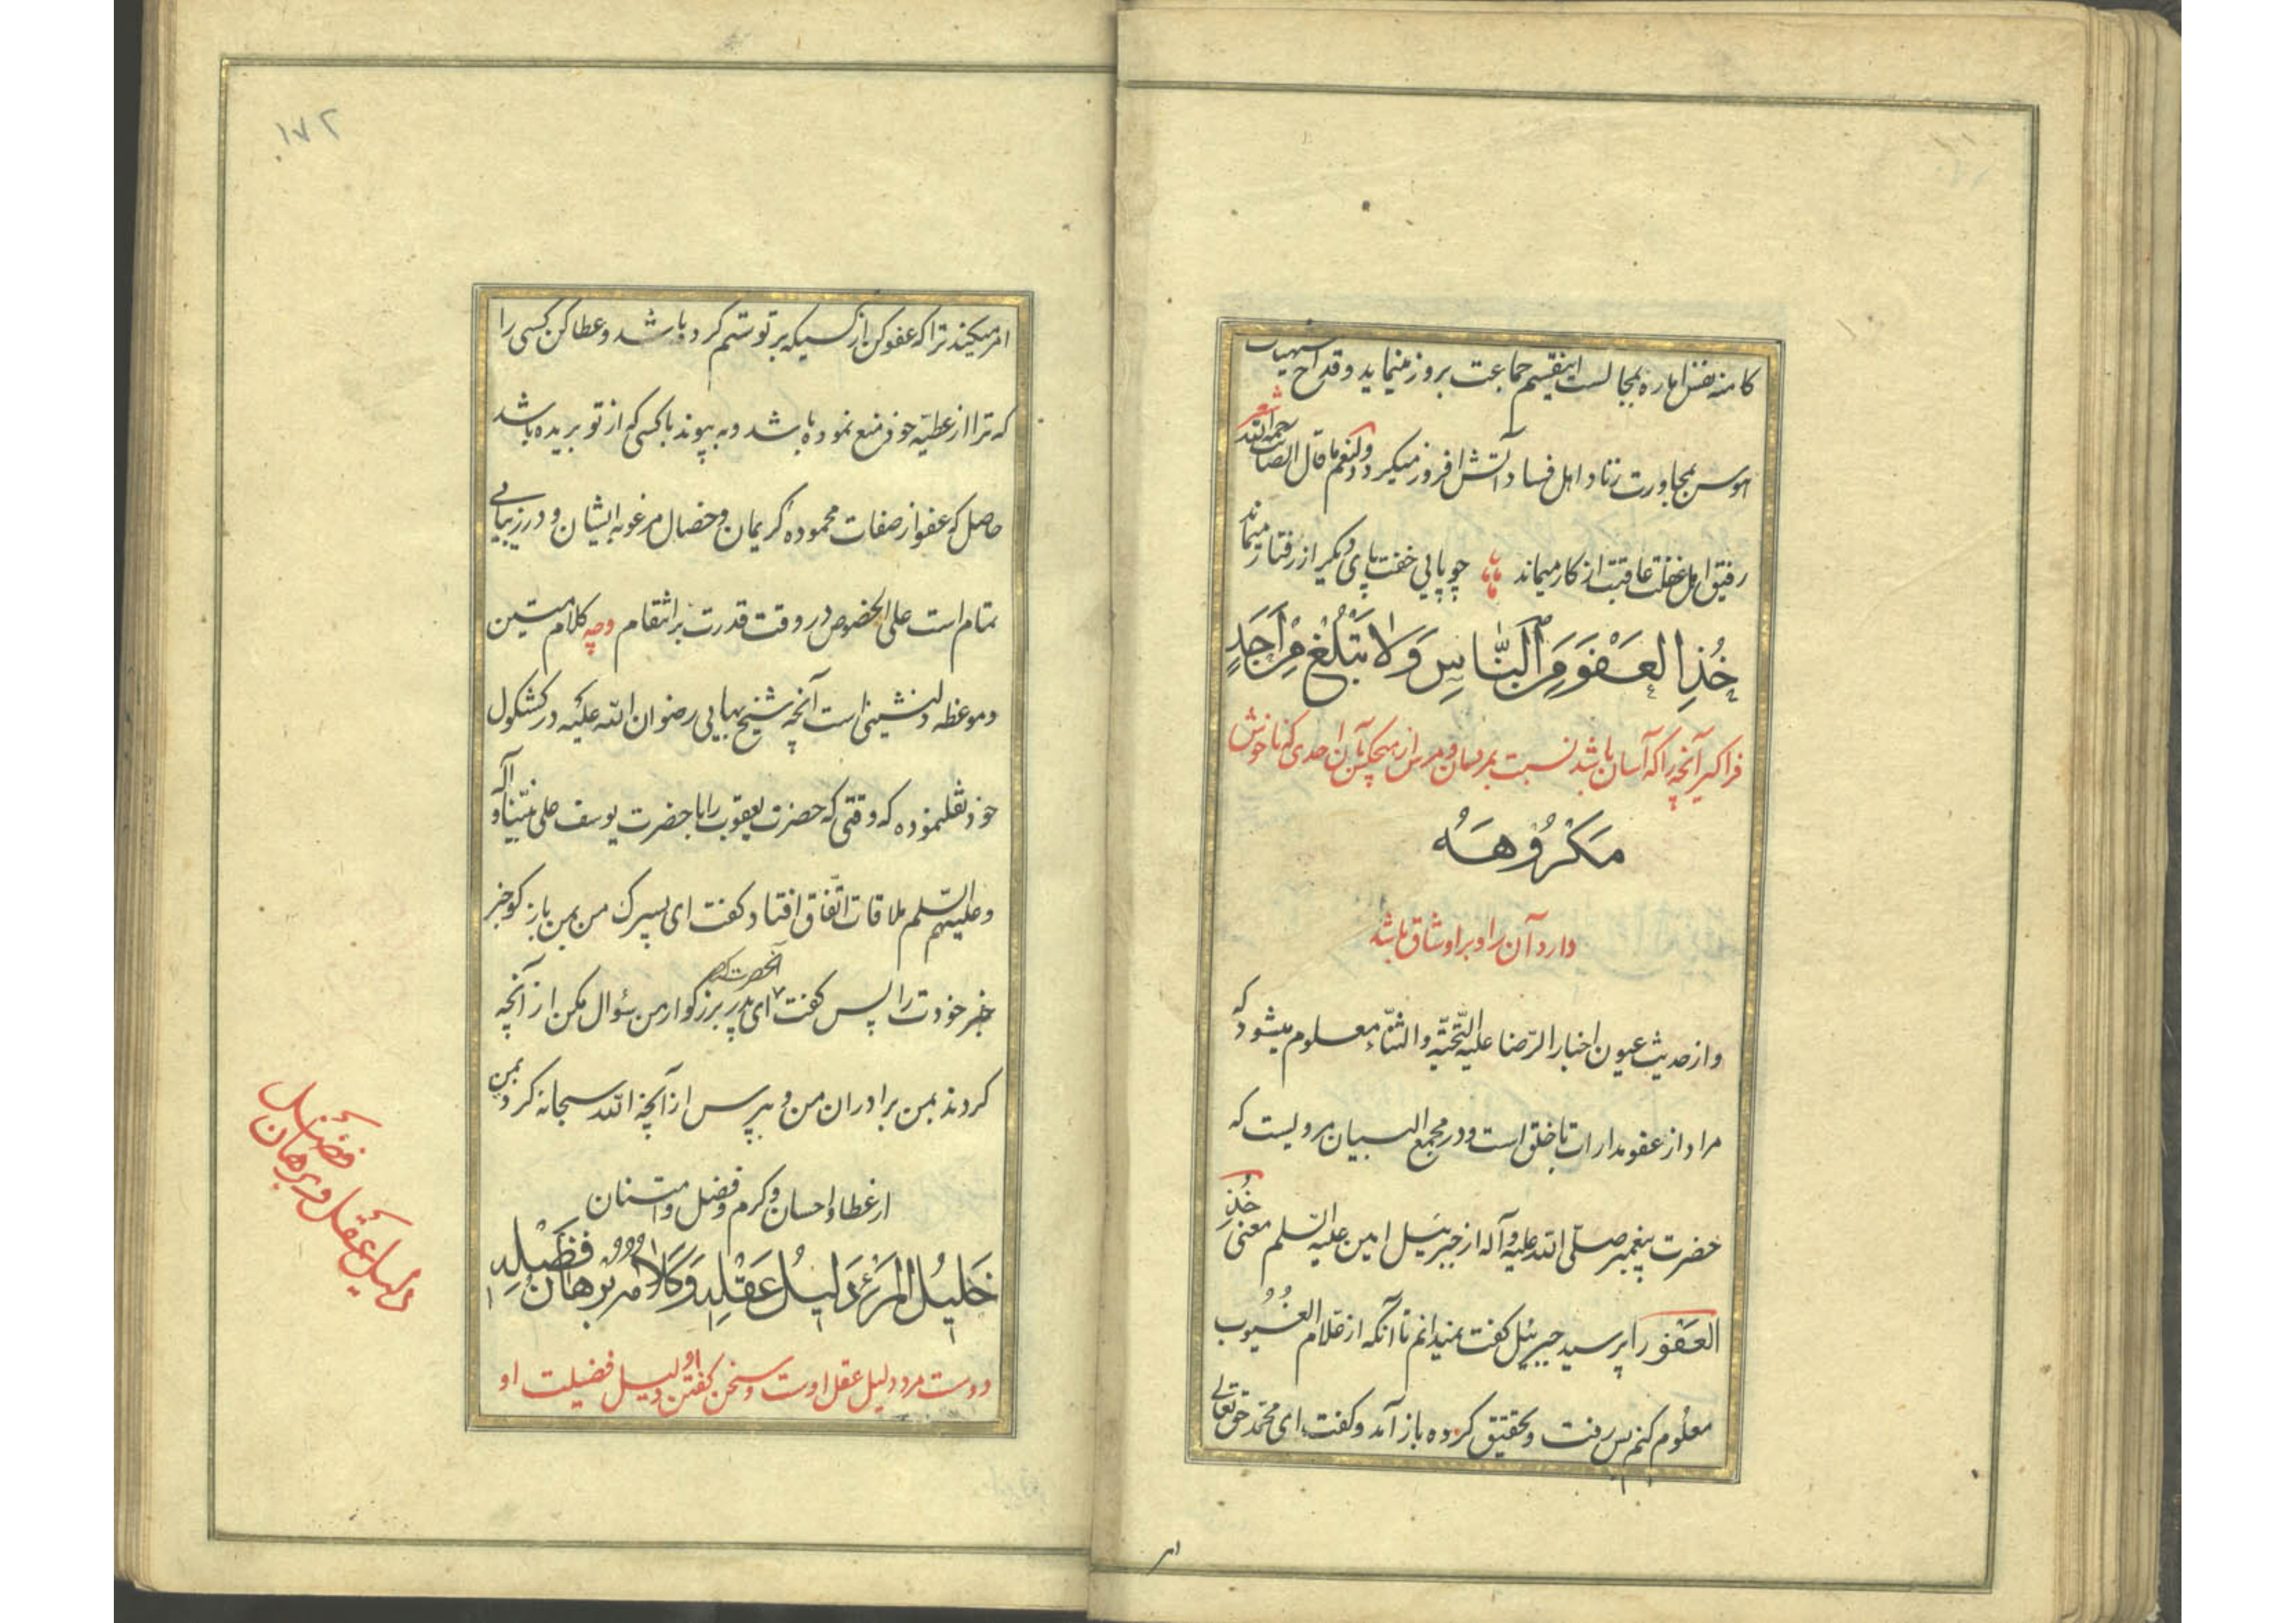 کامنه نفس اماره بمجالست اینقسم جماعت بروز مینماید و قداح
هوس بمجاورت زناد اهل فساد آتش افروز میگردد و لنعم ما قال الصائب رحمه الله
شعر
رفیق اهل غفلت عاقبت از کار میماند چو پایی خفت پای دیگر از رفتار میماند
خُذِ العَفْوَ مِنَ النَّاسِ وَلا تَبْلُغْ مِنْ أَحَدٍ
فراگیر آنچه را که آسان باشد نسبت بمردمان و مرس از هیچکس آن احدی که ناخوش
مَكْرُوهَهُ
دارد آن را و بر او شاق باشد
و از حدیث عیون اخبار الرّضا علیه التّحیّة و الثّناء معلوم میشود که
مراد از عفو مدارات با خلق است و در مجمع البیان مرویست که
حضرت پیغمبر صلّی الله علیه و آله از جبرئیل امین علیه السّلم معنی خُذِ
العَفْو را پرسید جبرئیل گفت نمیدانم تا آنکه از علام الغُیُوب
معلوم کنم پس رفت و تحقیق کرده باز آمد و گفت ای محمّد حق تعالی
امر
۱۷۲
امر میکند ترا که عفو کن از کسیکه بر تو ستم کرده باشد و عطا کن کسی را
که ترا از عطیّه خود منع نموده باشد و به پیوند با کسی که از تو بریده باشد
حاصل که عفو از صفات محموده کریمان و خصال مرغوبه ایشان و در زیبایی
تمام است علی الخصوص در وقت قدرت بر انتقام وچه کلام متین
و موعظه دلنشینی است آنچه شیخ بهایی رضوان الله علیه در کشکول
خود نقلنموده که وقتی که حضرت یعقوب را با حضرت یوسف علی نبیّنا و آله
و علیهم السّلم ملاقات اتّفاق افتاد گفت ای پسرک من بمن باز گو خبر
خبر خودت را پس آنحضرت گفت ای پدر بزرگوار من سؤال مکن از آنچه
کردند بمن برادران من و بپرس از آنچه الله سبحانه کرد بمن
از عطا و احسان و کرم و فضل و امتنان
خَلیلُ المَرْءِ دَلیلُ عَقْلِهِ وَكَلامُهُ بُرْهَانُ فَضْلِهِ
دوست مرد دلیل عقل اوست و سخن گفتن او دلیل فضیلت او
دلیل عقل و برهان فضل